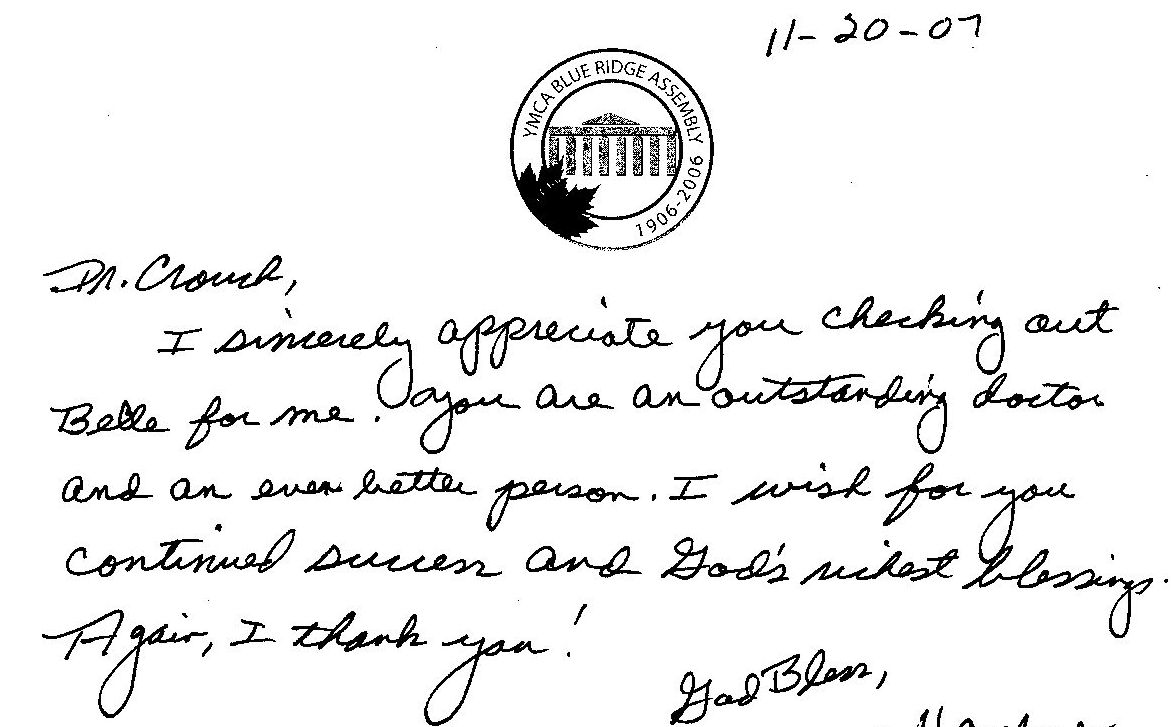 11-20-07
YMCA BLUE RIDGE ASSEMBLY
1906-2006
Dr. Crouch,
I sincerely appreciate you checking out
Belle for me. You are an outstanding doctor
and an even better person. I wish for you
continued success and God's richest blessings.
Again, I thank you!
God Bless,